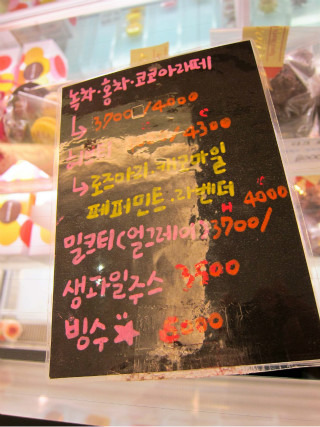 녹차·홍차·코코아라떼
↳ 3700/4000
4300
↳로즈마리·캐모마일
페퍼민트·라벤더
밀크티(얼그레이) H 3700/ C 4000
생과일주스 3500
빙수